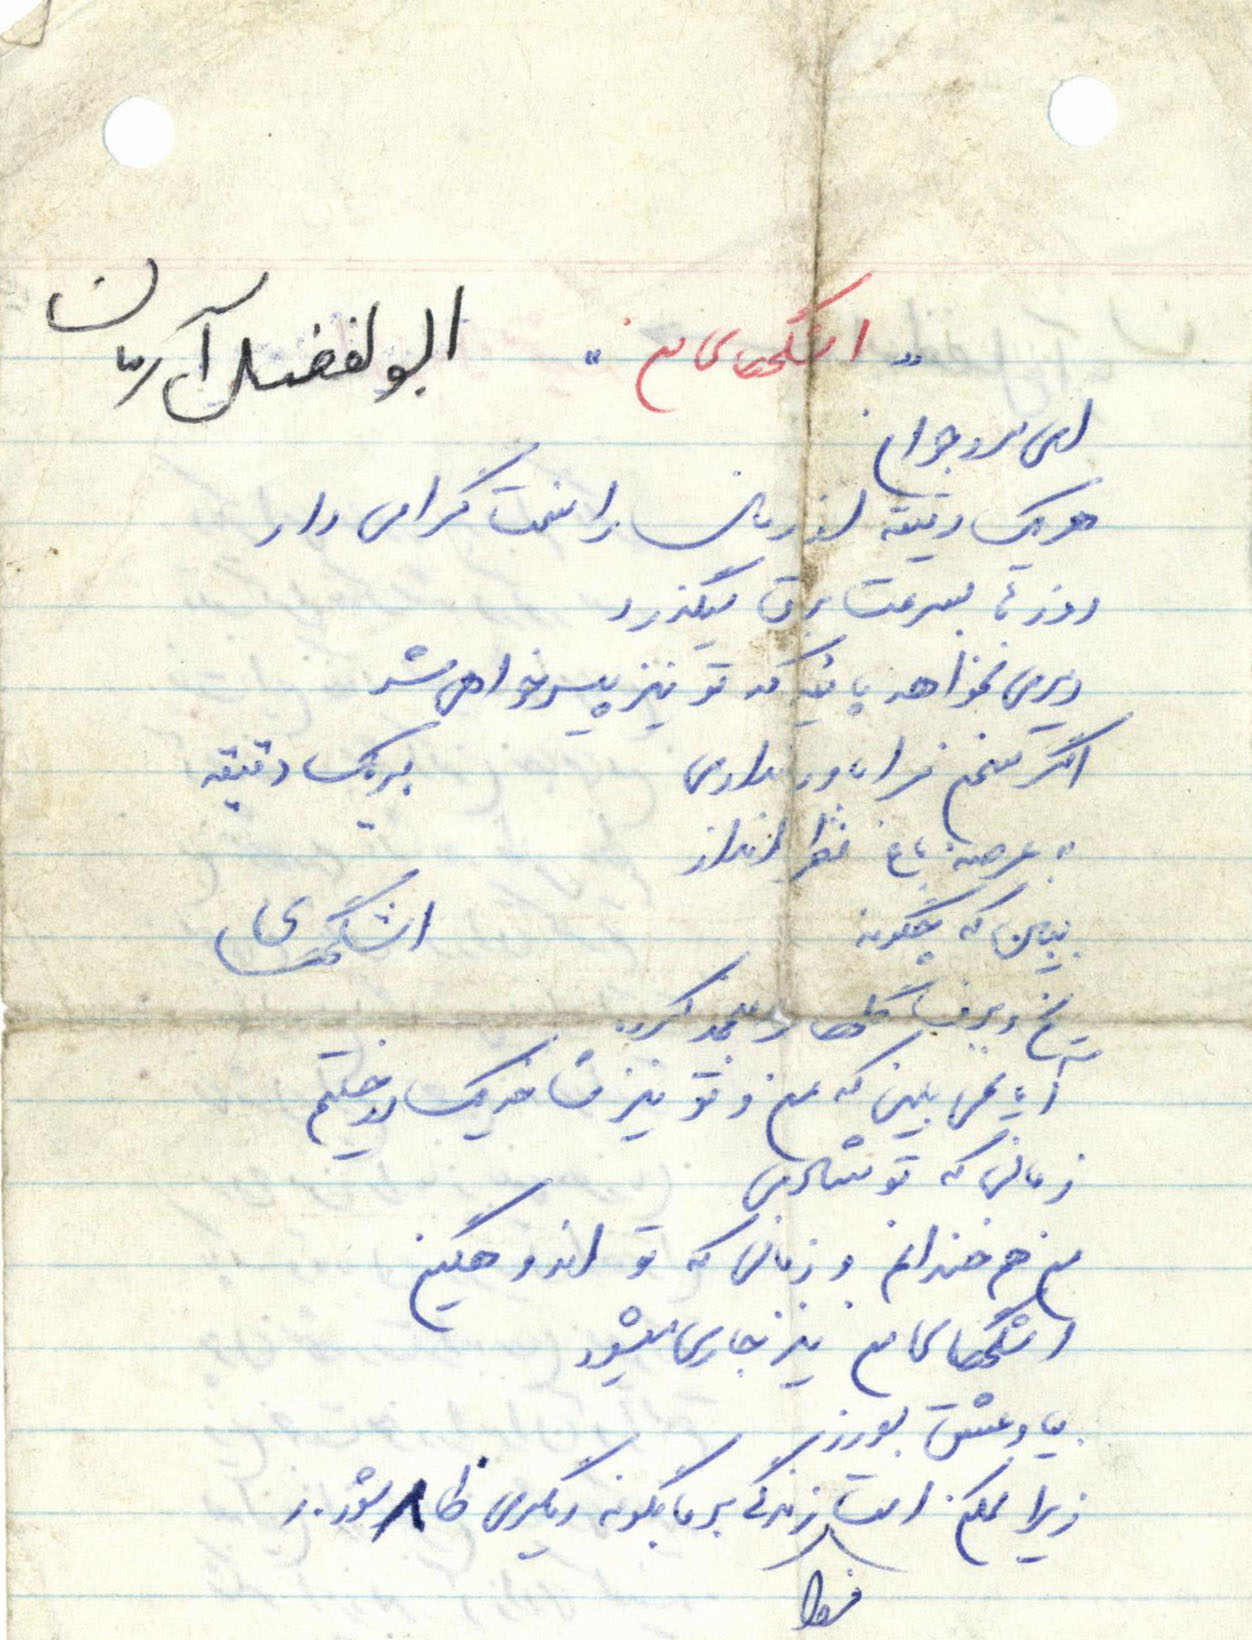 " اشکهای من "
ابوالفضل آرمان
ای سرو جوان
هر یک دقیقه از زمان را غنیمت گرامی دار
روزها بسرعت برق میگذرد
دیری نخواهد پائید که تو نیز پیر خواهی شد
اگر سخن مرا باور نداری به یک دقیقه
به عرصه باغ نظر انداز
ببین که چگونه اشکهای
یخ و برف گلها را منجمد کرده
آیا می بینی که من و تو نیز شاخه یک درختیم
زمانی که تو شادمی
من هم خندانم و زمانی که تو اندوهگین
اشکهای من نیز جاری میشود
بیا و عشق بورز
زیرا ممکن است زندگی بر ما بگونه دیگری ظاهر شود
فردا